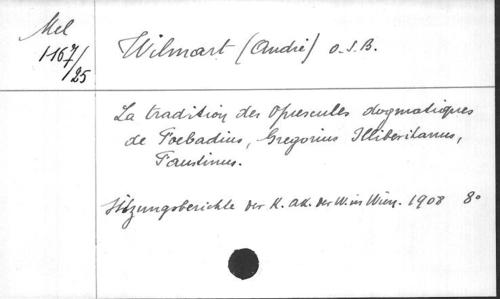 Mel
1167/25
Wilmart (André) O.S.B.
La tradition des Opuscules dogmatiques
de Foebadius, Gregorius Illiberitanus,
Faustinus.
Sitzungsberichte der K. Ak. der W. in Wien. 1908 8°